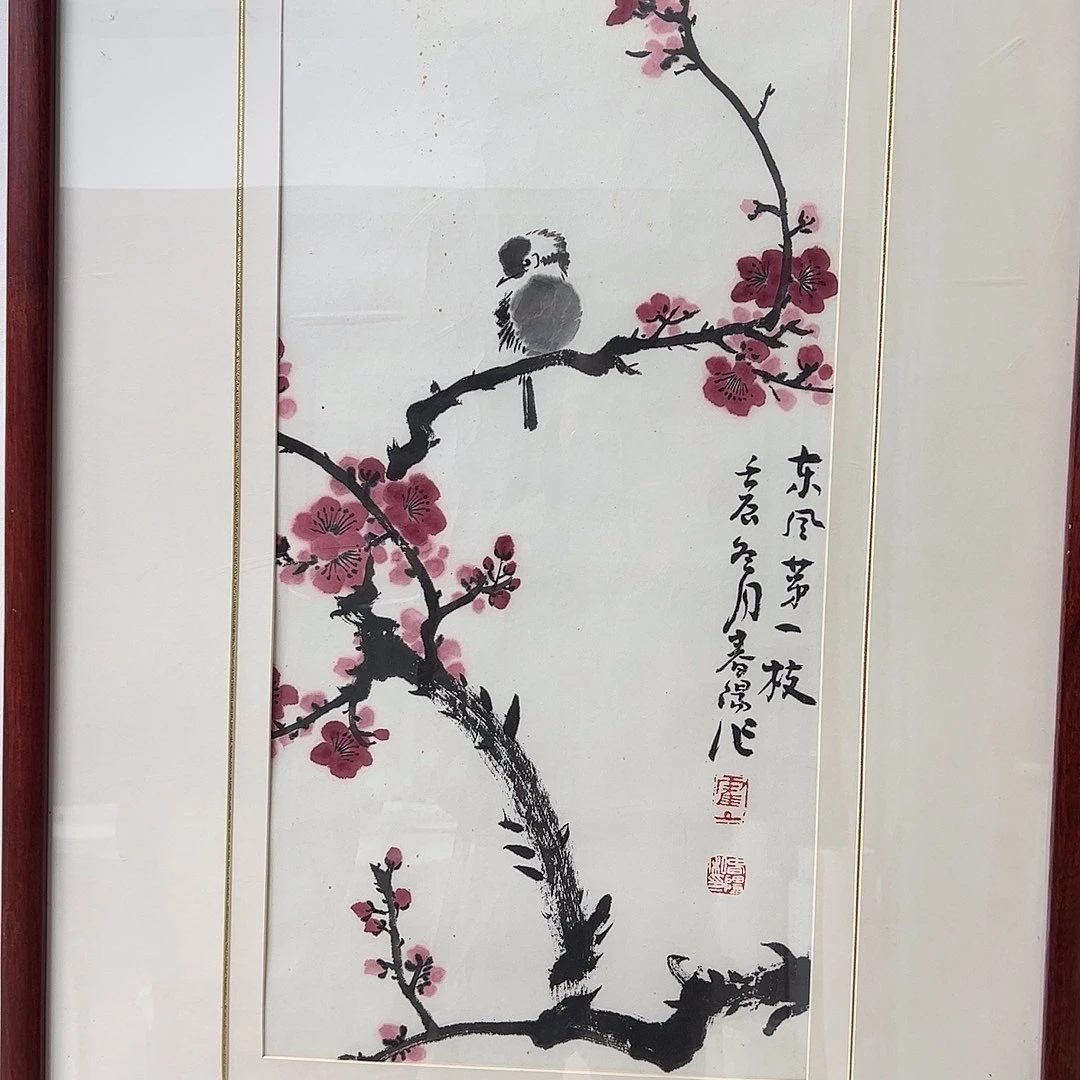 东风第一枝
壬辰冬月春阳作